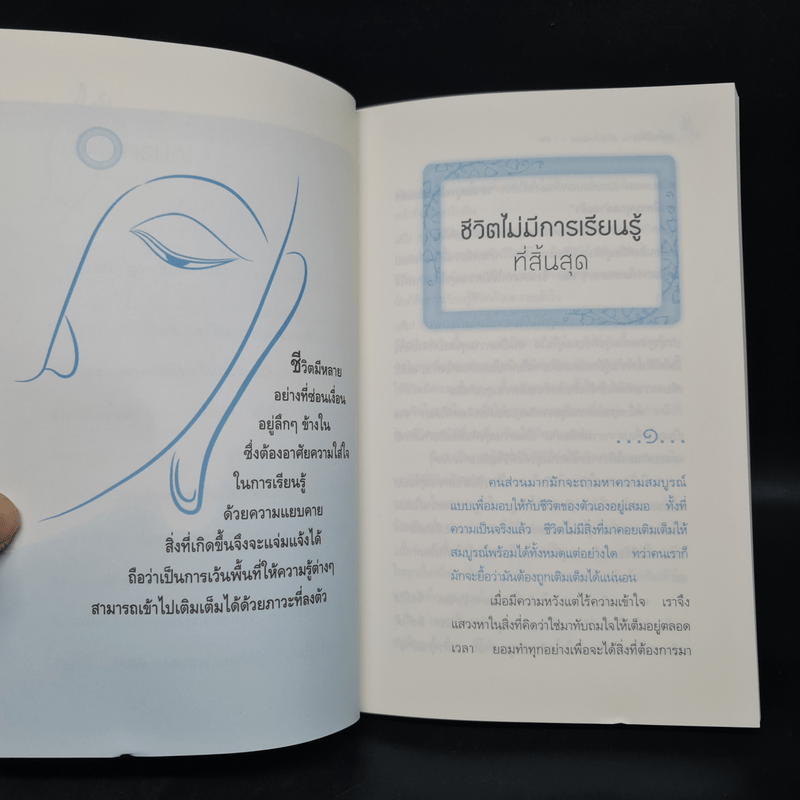 ชีวิตมีหลาย
อย่างที่ซ่อนเงื่อน
อยู่ลึกๆ ข้างใน
ซึ่งต้องอาศัยความใส่ใจ
ในการเรียนรู้
ด้วยความแยบคาย
สิ่งที่เกิดขึ้นจึงจะแจ่มแจ้งได้
ถือว่าเป็นการเว้นพื้นที่ให้ความรู้ต่างๆ
สามารถเข้าไปเติมเต็มได้ด้วยภาวะที่ลงตัว
ชีวิตไม่มีการเรียนรู้
ที่สิ้นสุด
...๑...
คนส่วนมากมักจะถามหาความสมบูรณ์
แบบเพื่อมอบให้กับชีวิตของตัวเองอยู่เสมอ ทั้งที่
ความเป็นจริงแล้ว ชีวิตไม่มีสิ่งที่มาคอยเติมเต็มให้
สมบูรณ์พร้อมได้ทั้งหมดแต่อย่างใด ทว่าคนเราก็
มักจะยื้อว่ามันต้องถูกเติมเต็มได้แน่นอน
เมื่อมีความหวังแต่ไร้ความเข้าใจ เราจึง
แสวงหาในสิ่งที่คิดว่าใช่มาทับถมใจให้เต็มอยู่ตลอด
เวลา ยอมทำทุกอย่างเพื่อจะได้สิ่งที่ต้องการมา